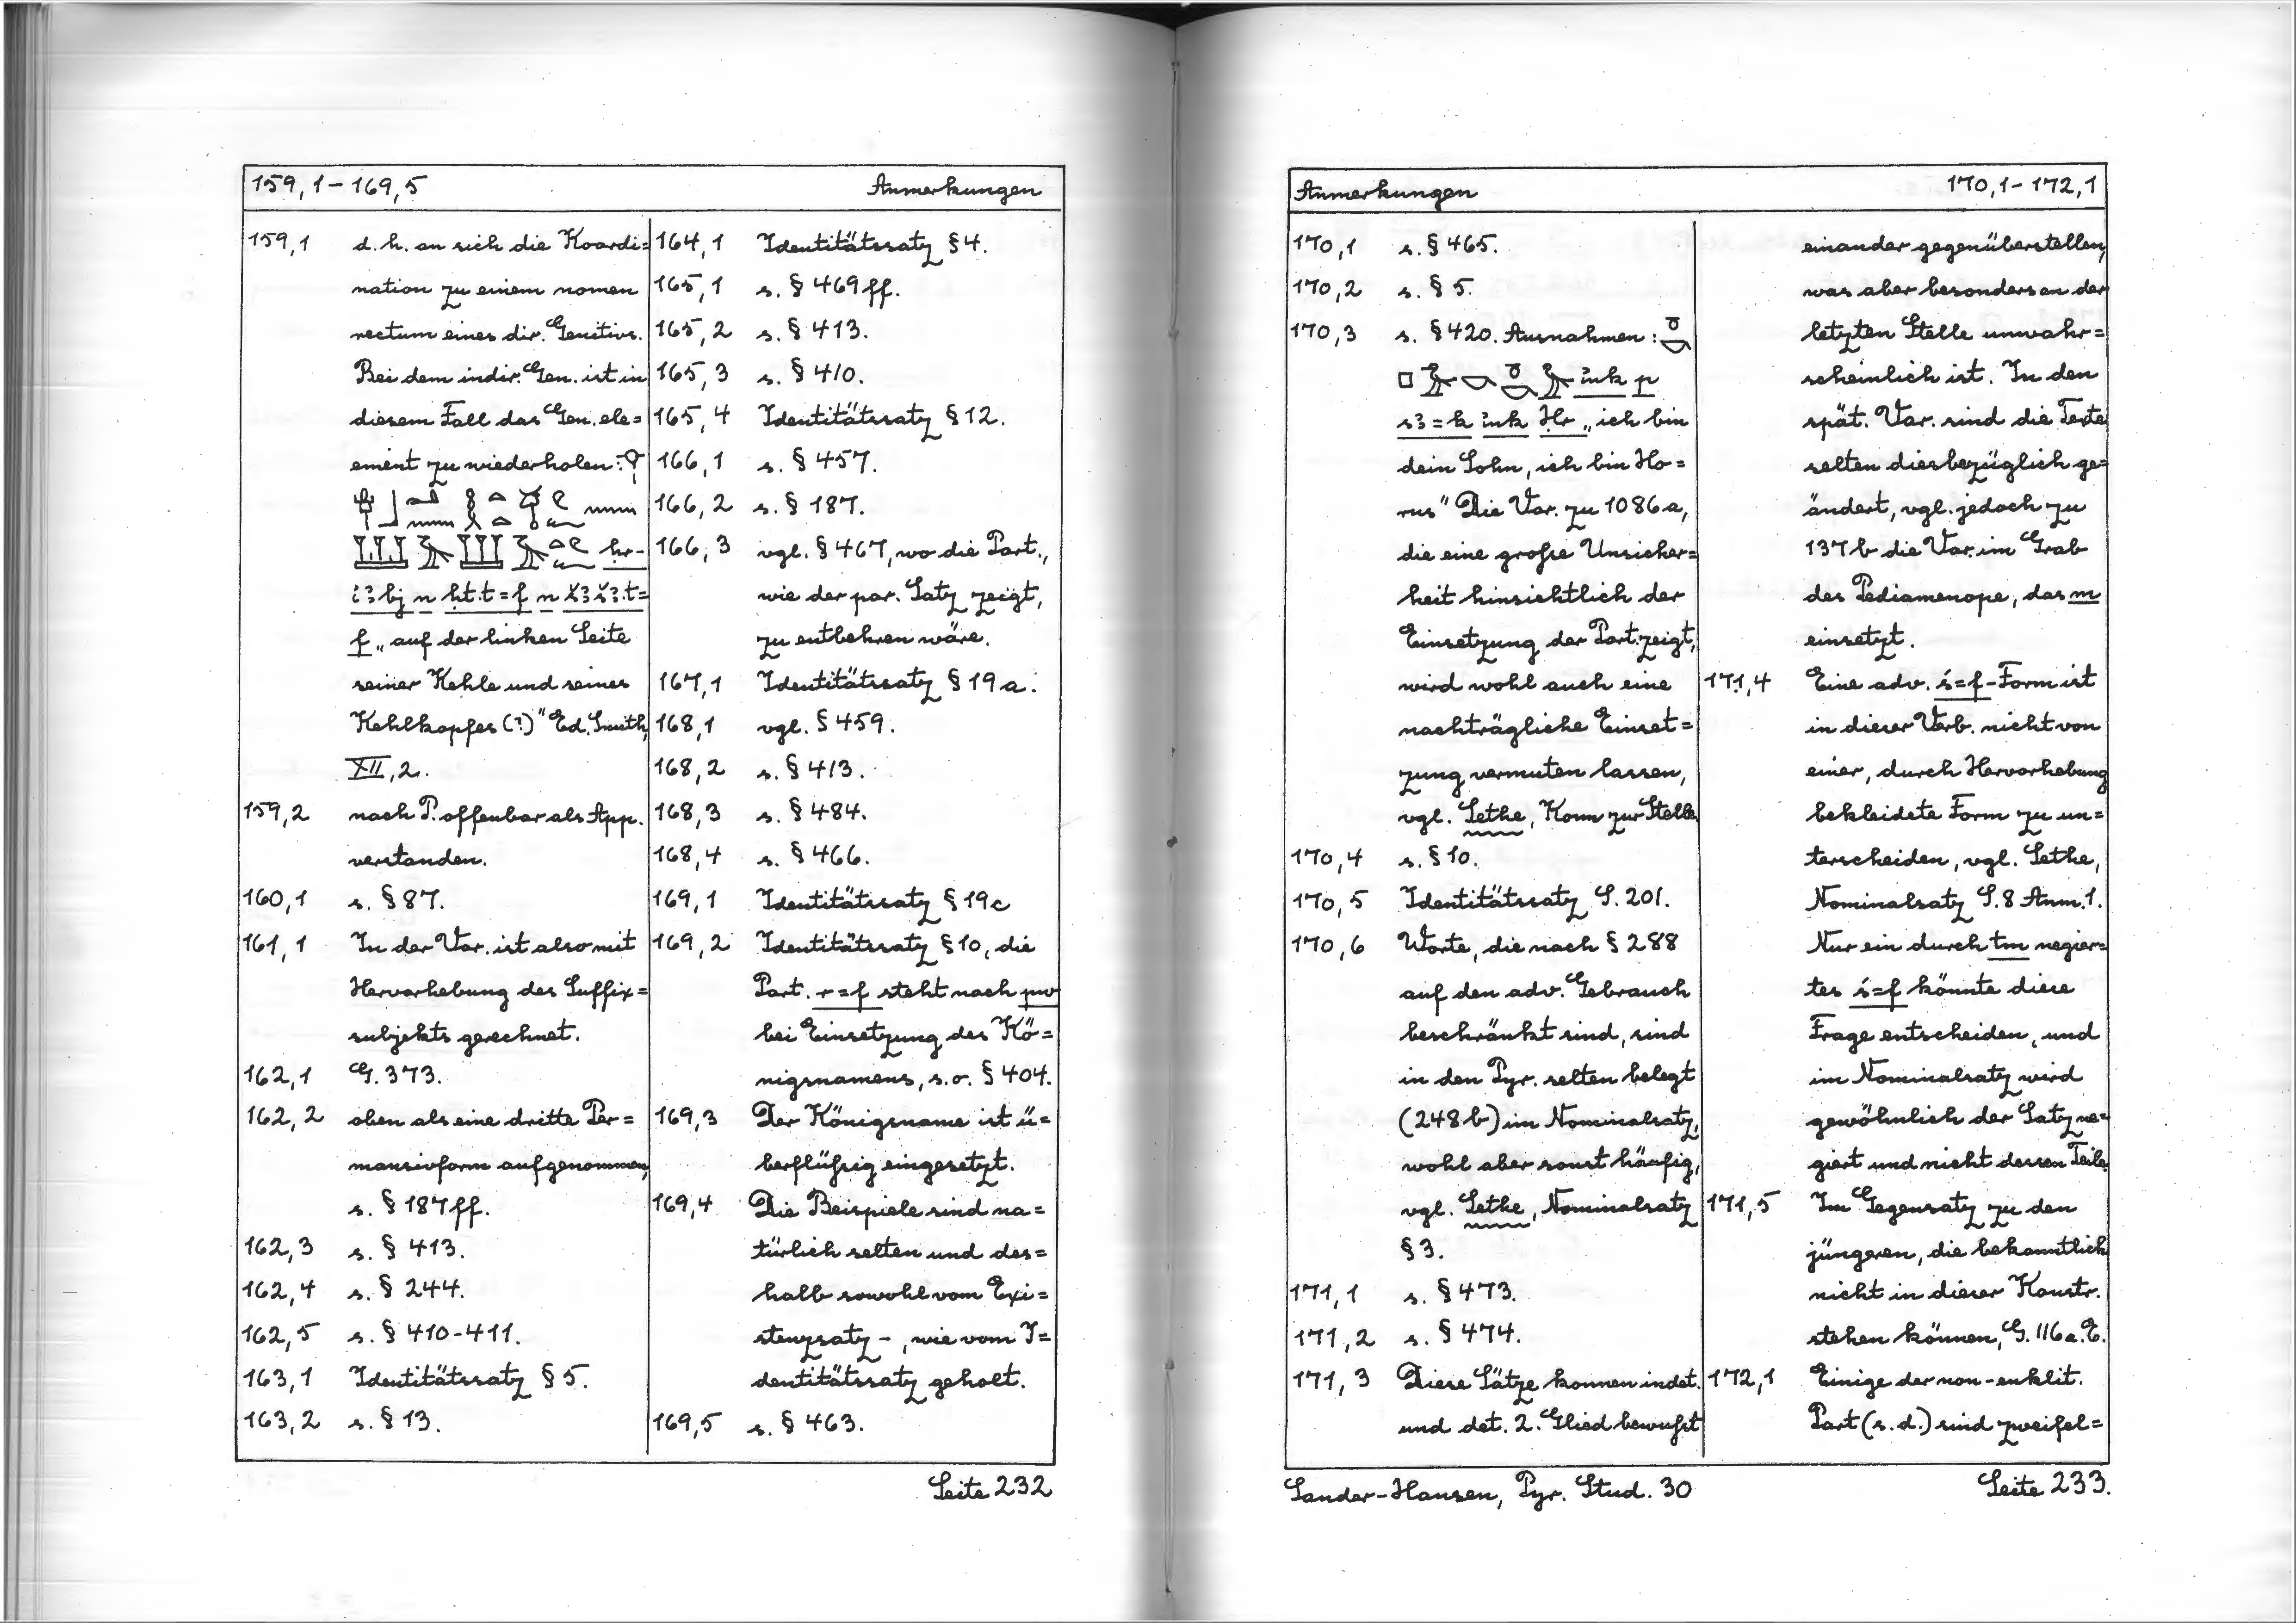 159,1 – 169,5 Anmerkungen
159,1 d.h. an sich die Koordi=
nation zu einem nomen
rectum eines dir. Genitivs.
Bei dem indir. Gen. ist in
diesem Fall das Gen. ele=
ement zu wiederholen:
ḥr-
f „auf der linken Seite
seiner Kehle und seines
Kehlkopfes (?)" Ed. Smith,
XII, 2.
159,2 nach P. offenbar als App.
verstanden.
160,1 s. § 87.
161,1 In der Var. ist also mit
Hervorhebung des Suffix=
subjekts gerechnet.
162,1 G. 373.
162,2 oben als eine dritte Per=
mansivform aufgenommen,
s. § 187 ff.
162,3 s. § 413.
162,4 s. § 244.
162,5 s. § 410-411.
163,1 Identitätssatz § 5.
163,2 s. § 13.
164,1 Identitätssatz § 4.
165,1 s. § 469 ff.
165,2 s. § 413.
165,3 s. § 410.
165,4 Identitätssatz § 12.
166,1 s. § 457.
166,2 s. § 187.
166,3 vgl. § 467, wo die Part.,
wie der par. Satz zeigt,
zu entbehren wäre.
167,1 Identitätssatz § 19a.
168,1 vgl. § 459.
168,2 s. § 413.
168,3 s. § 484.
168,4 s. § 466.
169,1 Identitätssatz § 19c
169,2 Identitätssatz § 10, die
Part. r=f steht nach pw
bei Einsetzung des Kö=
nigsnamens, s.o. § 404.
169,3 Der Königsname ist ü=
berflüßig eingesetzt.
169,4 Die Beispiele sind na=
türlich selten und des=
halb sowohl vom Exi=
stenzsatz –, wie vom I=
dentitätssatz geholt.
169,5 s. § 463.
Seite 232
Anmerkungen 170,1 – 172,1
170,1 s. § 465.
170,2 s. § 5.
170,3 s. § 420. Ausnahmen:
ỉnk p
sꜣ=k ỉnk Ḥr „ich bin
dein Sohn, ich bin Ho=
rus" Die Var. zu 1086a,
die eine große Unsicher=
heit hinsichtlich der
Einsetzung der Part. zeigt,
wird wohl auch eine
nachträgliche Einset=
zung vermuten lassen,
vgl. Sethe, Kom zur Stelle.
170,4 s. § 10.
170,5 Identitätssatz S. 201.
170,6 Worte, die nach § 288
auf den adv. Gebrauch
beschränkt sind, sind
in den Pyr. selten belegt
(248b) im Nominalsatz,
wohl aber sonst häufig,
vgl. Sethe, Nominalsatz
§ 3.
171,1 s. § 473.
171,2 s. § 474.
171,3 Diese Sätze konnen indet.
und det. 2. Glied bewußt
einander gegenüberstellen,
was aber besonders an der
letzten Stelle unwahr=
scheinlich ist. In den
spät. Var. sind die Texte
selten diesbezüglich ge=
ändert, vgl. jedoch zu
137b die Var. im Grab
des Pediamenope, das m
einsetzt.
171,4 Eine adv. ś=f-Form ist
in dieser Verb. nicht von
einer, durch Hervorhebung
bekleidete Form zu un=
terscheiden, vgl. Sethe,
Nominalsatz S. 8 Anm. 1.
Nur ein durch tm negier=
tes ś=f könnte diese
Frage entscheiden, und
im Nominalsatz wird
gewöhnlich der Satz ne=
giert und nicht dessen Teile
171,5 Im Gegensatz zu den
jüngeren, die bekanntlich
nicht in dieser Konstr.
stehen können, G. 116 a. E.
172,1 Einige der non-enklit.
Part (s.d.) sind zweifel=
Sander-Hansen, Pyr. Stud. 30 Seite 233.